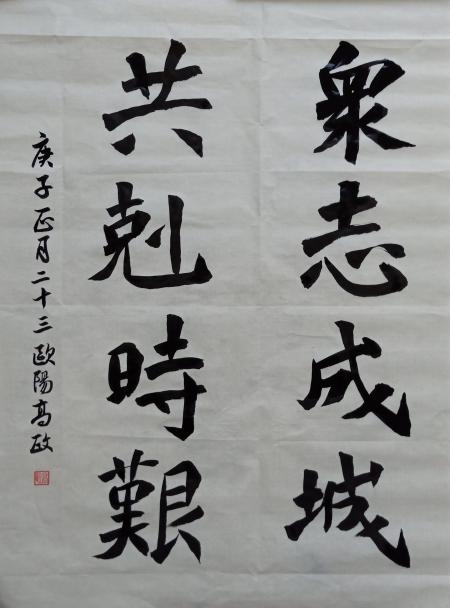 衆志成城
共剋時艱
庚子正月二十三歐陽高政